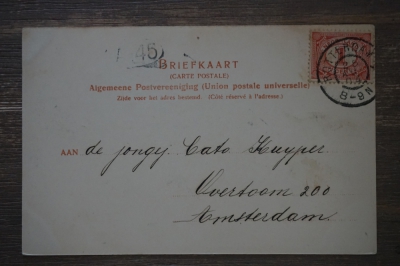 45
BRIEFKAART
(CARTE POSTALE)
Algemeene Postvereeniging (Union postale universelle)
Zijde voor het adres bestemd. (Côté réservé à l'adresse.)
AAN de jongej. Cato Kuyper
Overtoom 200
Amsterdam.
ROTTERDAM
8-9N